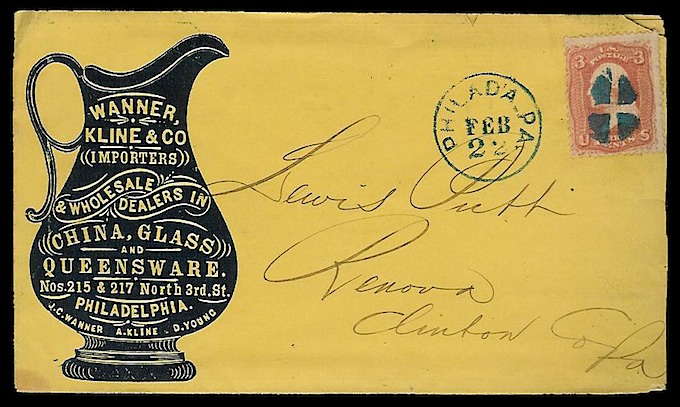 WANNER,
KLINE & CO
((IMPORTERS))
& WHOLESALE
DEALERS IN
CHINA, GLASS
AND
QUEENSWARE.
Nos. 215 & 217 North 3rd. St.
PHILADELPHIA.
J.C. WANNER A. KLINE D. YOUNG
PHILAD'A. PA
FEB
22
3 U.S. 3
POSTAGE
U CENTS S
Lewis
Renova
Clinton Co Pa